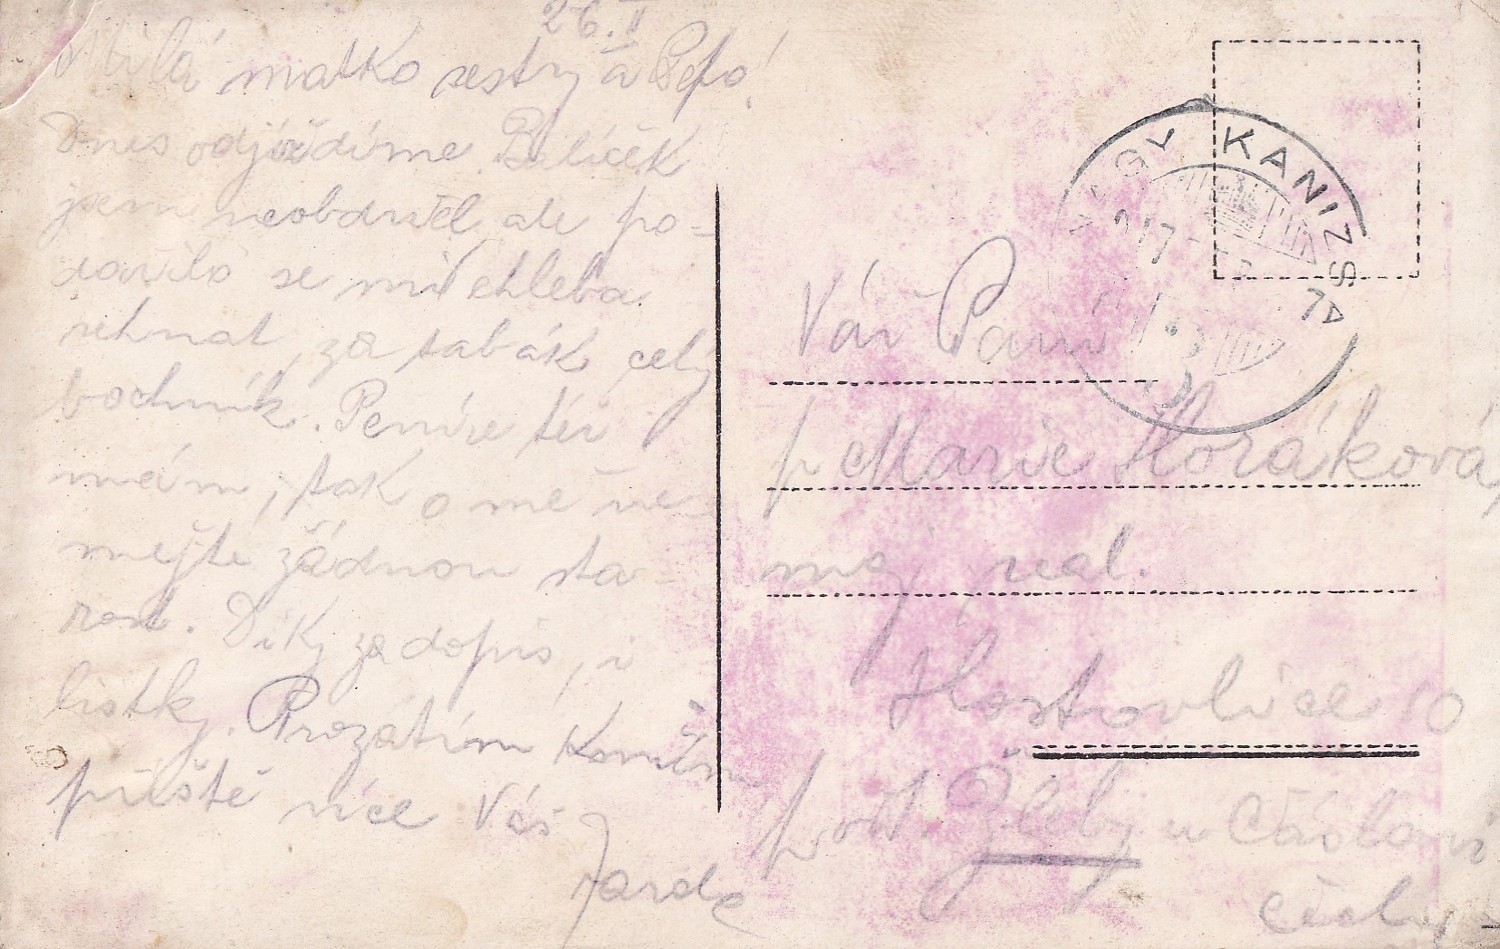 26. II
Milá matko sestry a Pepo!
Dnes odjíždíme. Balíček
jsem neobdržel ale po-
dařilo se mi chleba
sehnat, za tabák celý
bochník. Peníze též
mám, tak o mě ne-
mějte žádnou sta-
rost. Díky za dopis, i
lístky. Prozátím končím
příště více Váš
Jarda
NAGY KANIZSA
Paní
p Marie Horáková,
maj real.
Hostovlice 10
p Žleby u Čáslavi
Čechy